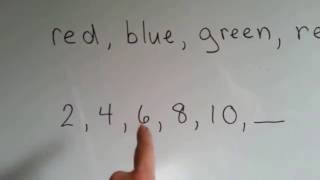 red, blue, green, re
2, 4, 6, 8, 10, __